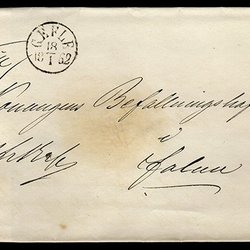 GEFLE
18
18 1 62
Konungens Befallningshaf
i
Falun